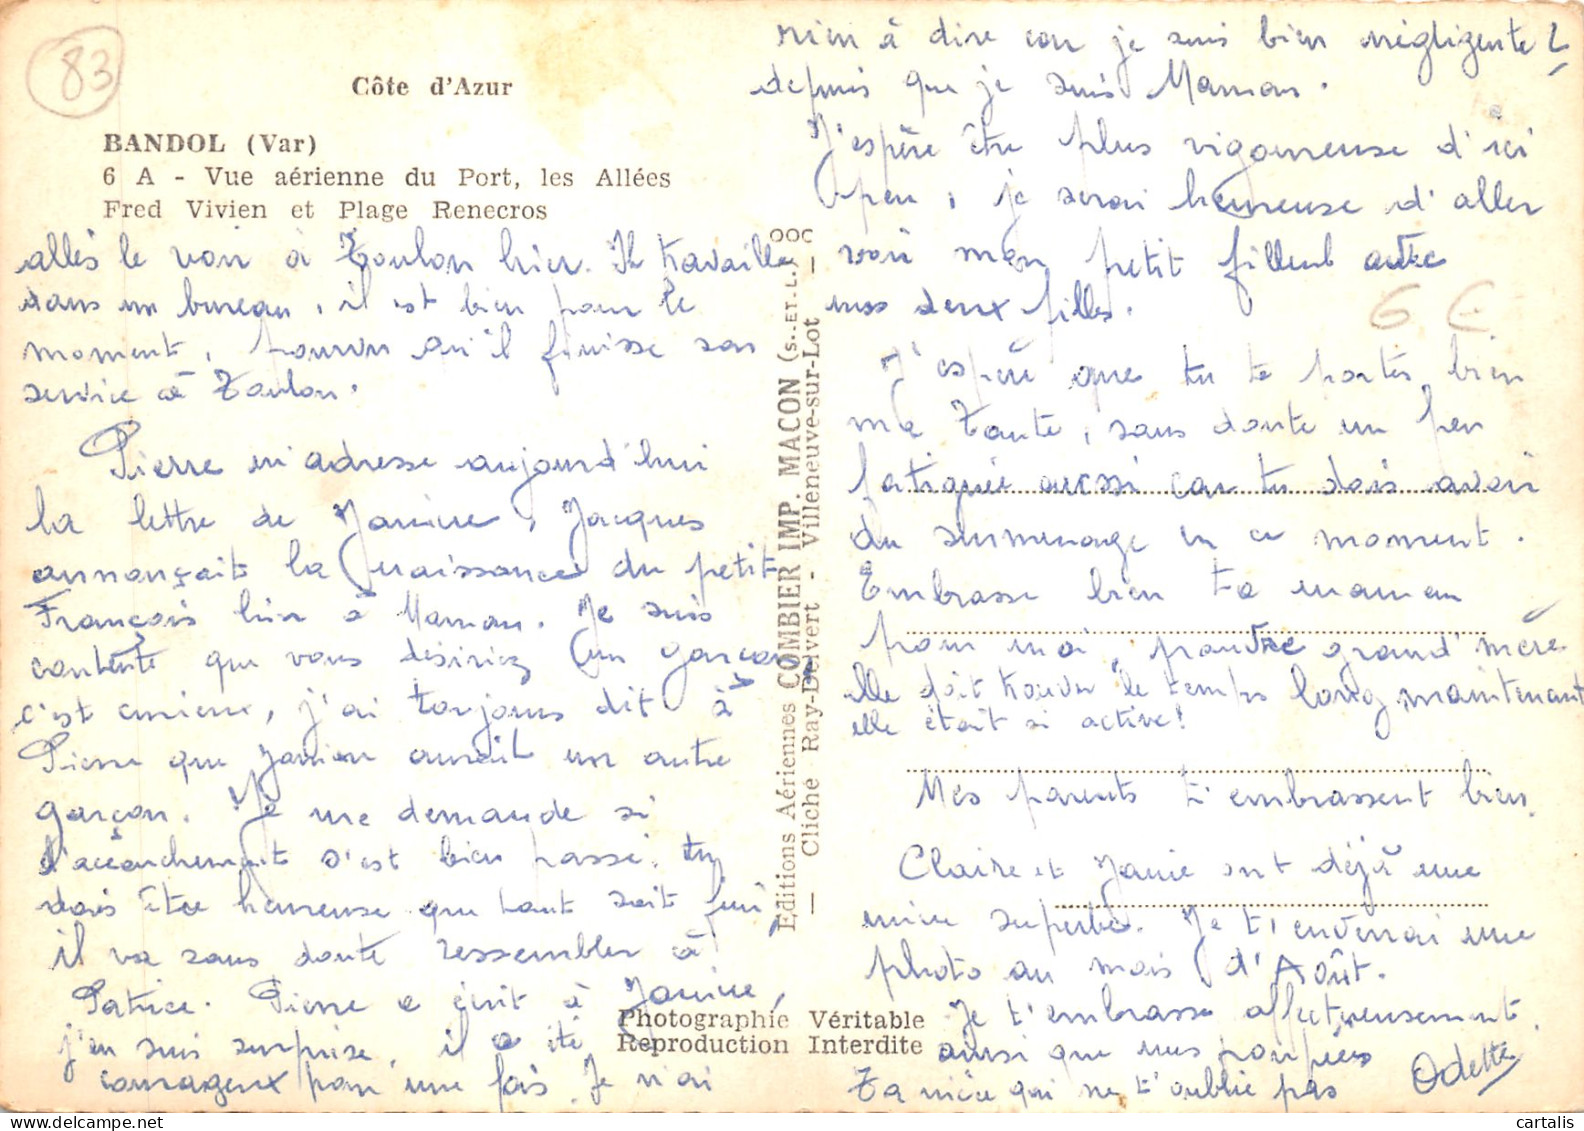 83
Côte d'Azur
BANDOL (Var)
6 A - Vue aérienne du Port, les Allées
Fred Vivien et Plage Renecros
allés le voir à Toulon hier. Il travaille
dans un bureau, il est bien pour le
moment, pourvu qu'il finisse son
service à Toulon.
Pierre m'adresse aujourd'hui
la lettre de Janine, Jacques
annonçait la naissance du petit
François hier à Maman. Je suis
contente que vous désiriez un garçon,
c'est curieux, j'ai toujours dit à
Pierre que Janine aurait un autre
garçon. Je me demande si
l'accouchement s'est bien passé, tu
dois être heureuse que tout soit fini,
il va sans doute ressembler à
Patrice. Pierre a écrit à Janine,
j'en suis surprise, il a été
courageux pour une fois. Je n'ai
rien à dire car je suis bien négligente
depuis que je suis Maman.
J'espère être plus vigoureuse d'ici
peu, je serai heureuse d'aller
voir mon petit filleul avec
mes deux filles.
6 €
J'espère que tu te portes bien
ma Tante, sans doute un peu
fatiguée aussi car tu dois avoir
du surmenage en ce moment.
Embrasse bien ta maman
pour moi, pauvre grand'mère
elle doit trouver le temps long maintenant
elle était si active!
Mes parents t'embrassent bien.
Claire et Janie ont déjà une
mine superbe. Je t'enverrai une
photo au mois d'Août.
Je t'embrasse affectueusement
ainsi que mes poupées
Ta nièce qui ne t'oublie pas
Odette
Editions Aériennes COMBIER IMP. MACON (S.-ET-L.)
— Cliché Ray-Delvert - Villeneuve-sur-Lot —
Photographie Véritable
Reproduction Interdite
cartalis